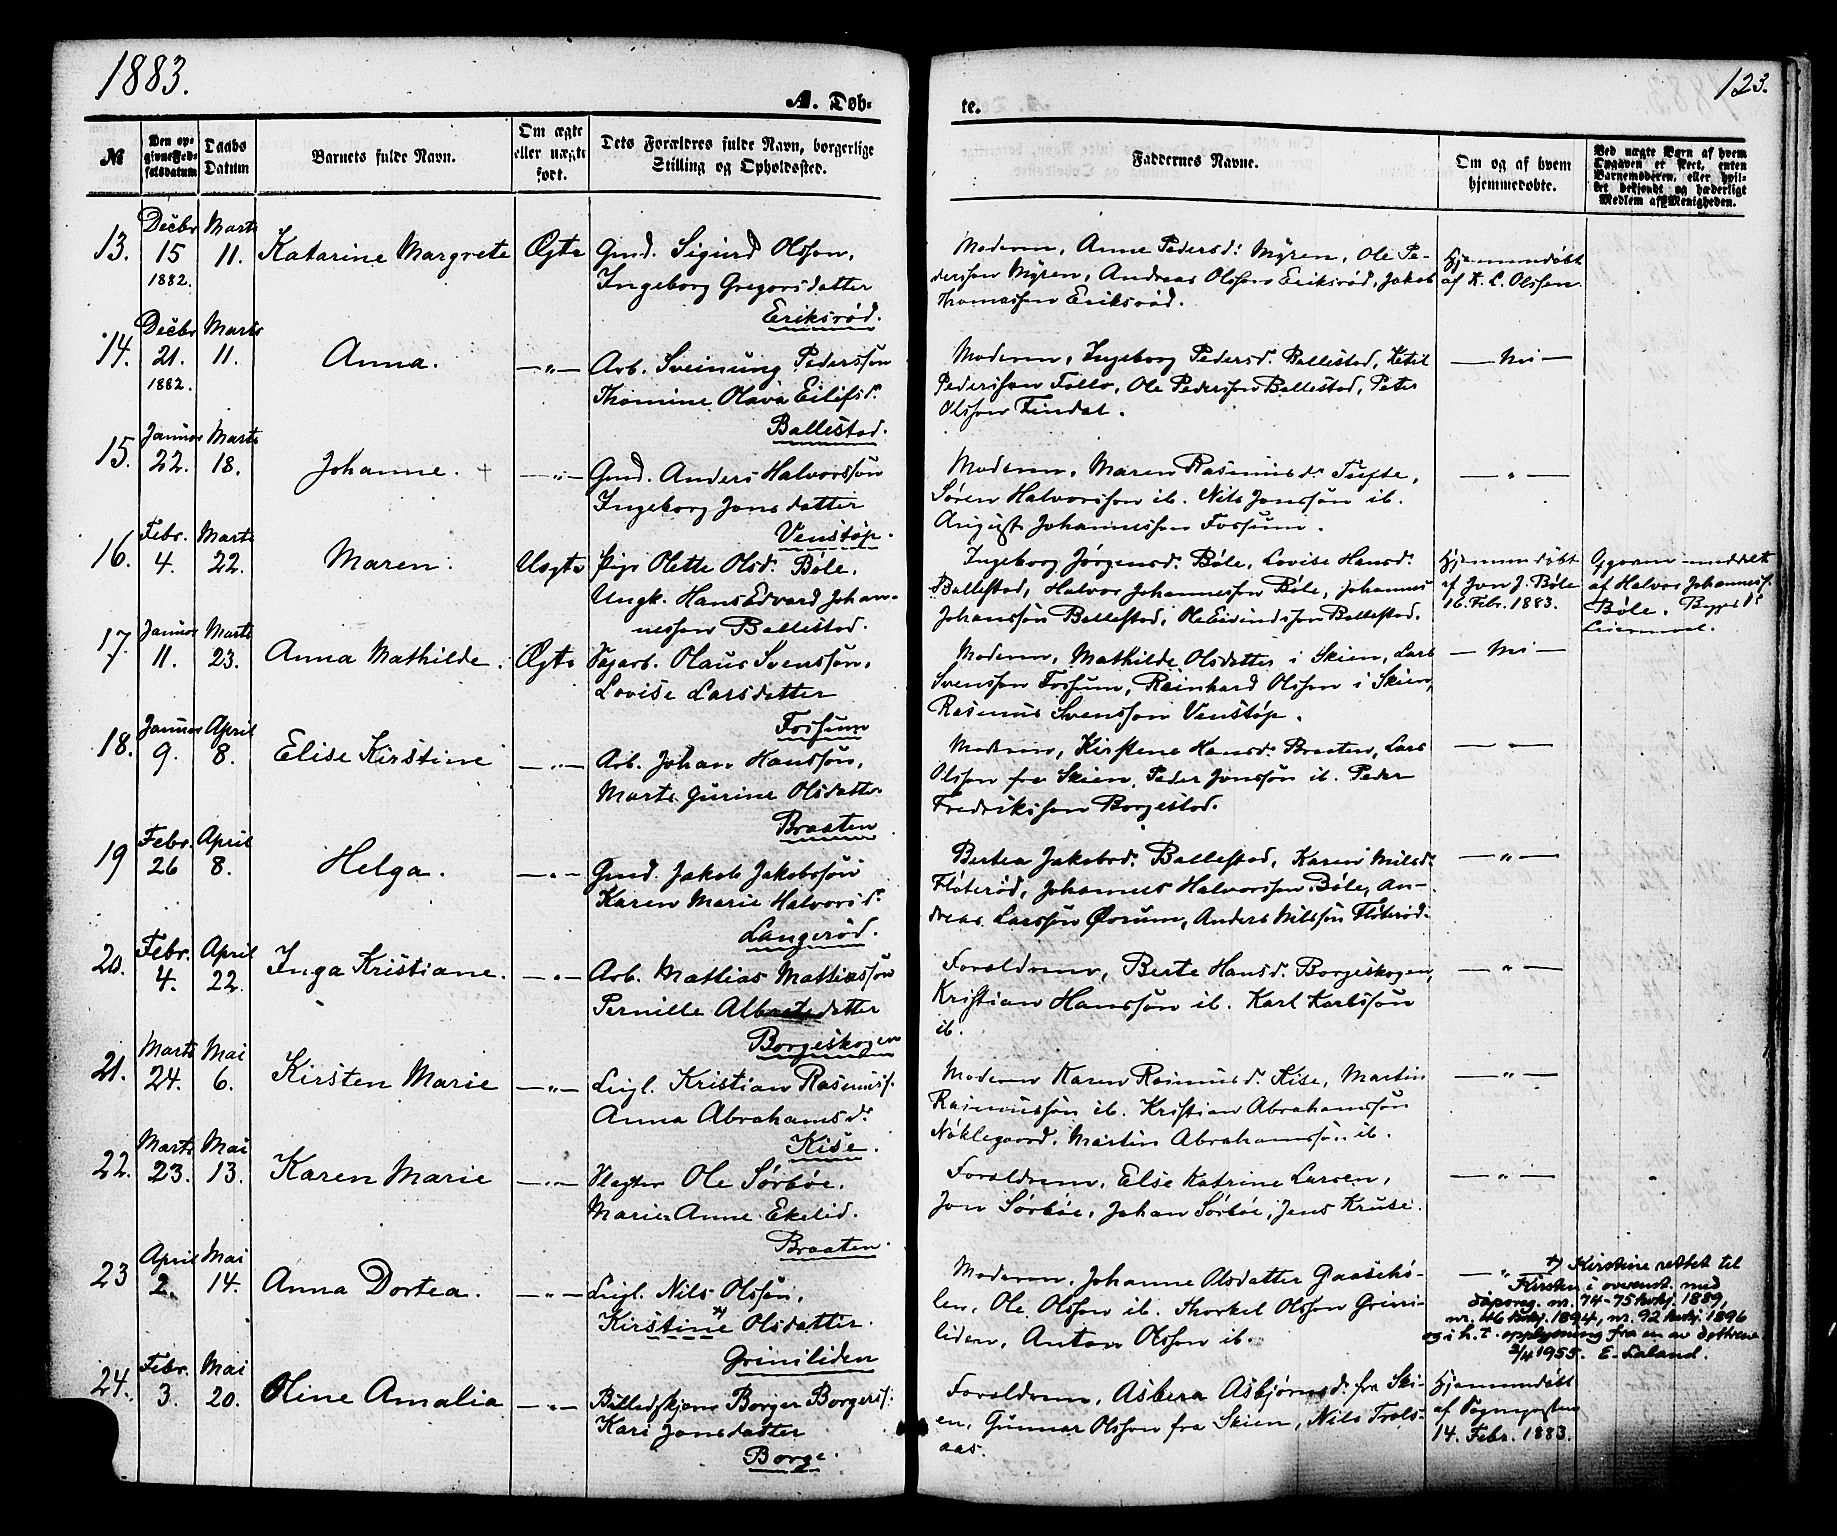 1883.
123.
A. Døb-
te.
№
Den op-
givne Føde-
selsdatum
Daabs
Datum
Barnets fulde Navn.
Om ægte
eller uægte
født.
Dets Forældres fulde Navn, borgerlige
Stilling og Opholdssted.
Faddernes Navne.
Om og af hvem
hjemmedøbt.
Ved uægte Børn af hvem
Opgaven er skeet, enten
Barnemoderen, eller hvil-
ket bekjendt og hæderligt
Medlem af Menigheden.
13.
Decbr
15
1882.
Marts
11.
Katarine Margrete
Ægte
Gmd. Sigurd Olsson,
Ingeborg Gregorsdatter
Eriksrød.
Moderen, Anne Pedersd. Myren, Ole Pe-
dersson Myren, Andreas Olsson Eriksrød, Jakob
Thomassen Eriksrød.
Hjemmedøbt
af K. L. Olsson.
14.
Decbr
21.
1882.
Marts
11.
Anna.
— " —
Arb. Sveinung Pederssøn
Thomine Olava Eilefsd.
Ballestad.
Moderen, Ingeborg Pedersd. Ballestad, Ketil
Pedersson Follo, Ole Pedersson Ballestad, Peter
Olsson Findal.
— Nei —
15.
Januar
22.
Marts
18.
Johanne. +
— " —
Gmd. Anders Halvorssøn
Ingeborg Jonsdatter
Venstøp.
Moderen, Maren Rasmusd. Tufte,
Søren Halvorsson ib. Nils Jonssøn ib.
August Johannesson Fossum.
— " —
16.
Febr.
4.
Marts
22.
Maren.
Uægte
Pige Olette Olsd. Bøle,
Ungk. Hans Edvard Johan-
nesson Ballestad.
Ingeborg Jørgensd. Bøle, Lovise Hansd.
Ballestad, Halvor Johannessen Bøle, Johannes
Johanssøn Ballestad, Ole Eivindsson Ballestad.
Hjemmedøbt
af Jon J. Bøle
16. Febr. 1883.
Opgaven meddelt
af Halvor Johanness.
Bøle.
Leiermaal.
17.
Januar
11.
Marts
23.
Anna Mathilde.
Ægte
Vejarb. Olaus Svenssøn,
Lovise Larsdatter
Fossum
Moderen, Mathilde Olsdatter i Skien, Lars
Svensson Fossum, Reinhard Olsson i Skien,
Rasmus Svensson Venstøp.
— Nei —
18.
Januar
9.
April
8.
Elise Kirstine
— " —
Arb. Johan Hanssøn,
Marte Gurine Olsdatter
Braaten
Moderen, Kirstene Hansd. Braaten, Lars
Olsson fra Skien, Peder Jonssøn ib. Peder
Fredriksson Borgestad.
— " —
19
Febr.
26
April
8.
Helga.
— " —
Gmd. Jakob Jakobssøn
Karen Marie Halvorsd.
Langerød.
Bertea Jakobsd. Ballestad, Karen Nilsd.
Fløterød, Johannes Halvorsson Bøle, An-
dreas Larssøn Øvrum, Anders Nilssøn Fløterød.
— " —
20.
Febr.
4.
April
22.
Inga Kristiane.
— " —
Arb. Mathias Mathiassøn
Pernille Albretsdatter
Borgeskogen
Forældrene, Berte Hansd. Borgeskogen,
Kristian Hanssøn ib. Karl Karlssøn
ib.
— " —
21.
Marts
24.
Mai
6.
Kirsten Marie
— " —
Leigl. Kristian Rasmuss.
Anna Abrahamsd.
Kise.
Moderen Karen Rasmusd. Kise, Martin
Rasmussøn ib. Kristian Abrahamssøn
Nøklegaard. Martin Abrahamssøn ib.
— " —
22.
Marts
23.
Mai
13.
Karen Marie
— " —
Vægter Ole Sørbøe,
Marie Anne Ekelid.
Braaten.
Forældrene, Else Katrine Larsen,
Jon Sørbøe, Johan Sørbøe, Jens Kruse.
— " —
23
April
2.
Mai
14.
Anna Dortea.
— " —
Leigl. Nils Olssøn,
Kirstine x) Olsdatter.
Griniliden
Moderen, Johanne Olsdatter Gaasehø-
len, Ole Olsson ib. Thorkel Olsson Grini-
liden, Anton Olsson ib.
— " —
x) Kirstine rettet til
Kirsten i overenst. med
dåpsreg. nr. 74-75 kirkebj. 1889,
nr. 46 kirkebj. 1894, nr. 92 kirkebj. 1896
og i h. t. opplysning fra en av døtrene.
2/4 1955. E. Laland.
24.
Febr.
3.
Mai
20.
Oline Amalia
— " —
Billedskjærer Borger Borgerss.
Kari Jonsdatter
Borge.
Forældrene, Asbera Asbjørnsd. fra Ski-
en, Gunnar Olsson fra Skien, Nils Trols-
aas.
Hjemmedøbt
af Sognepresten
14. Febr. 1883.